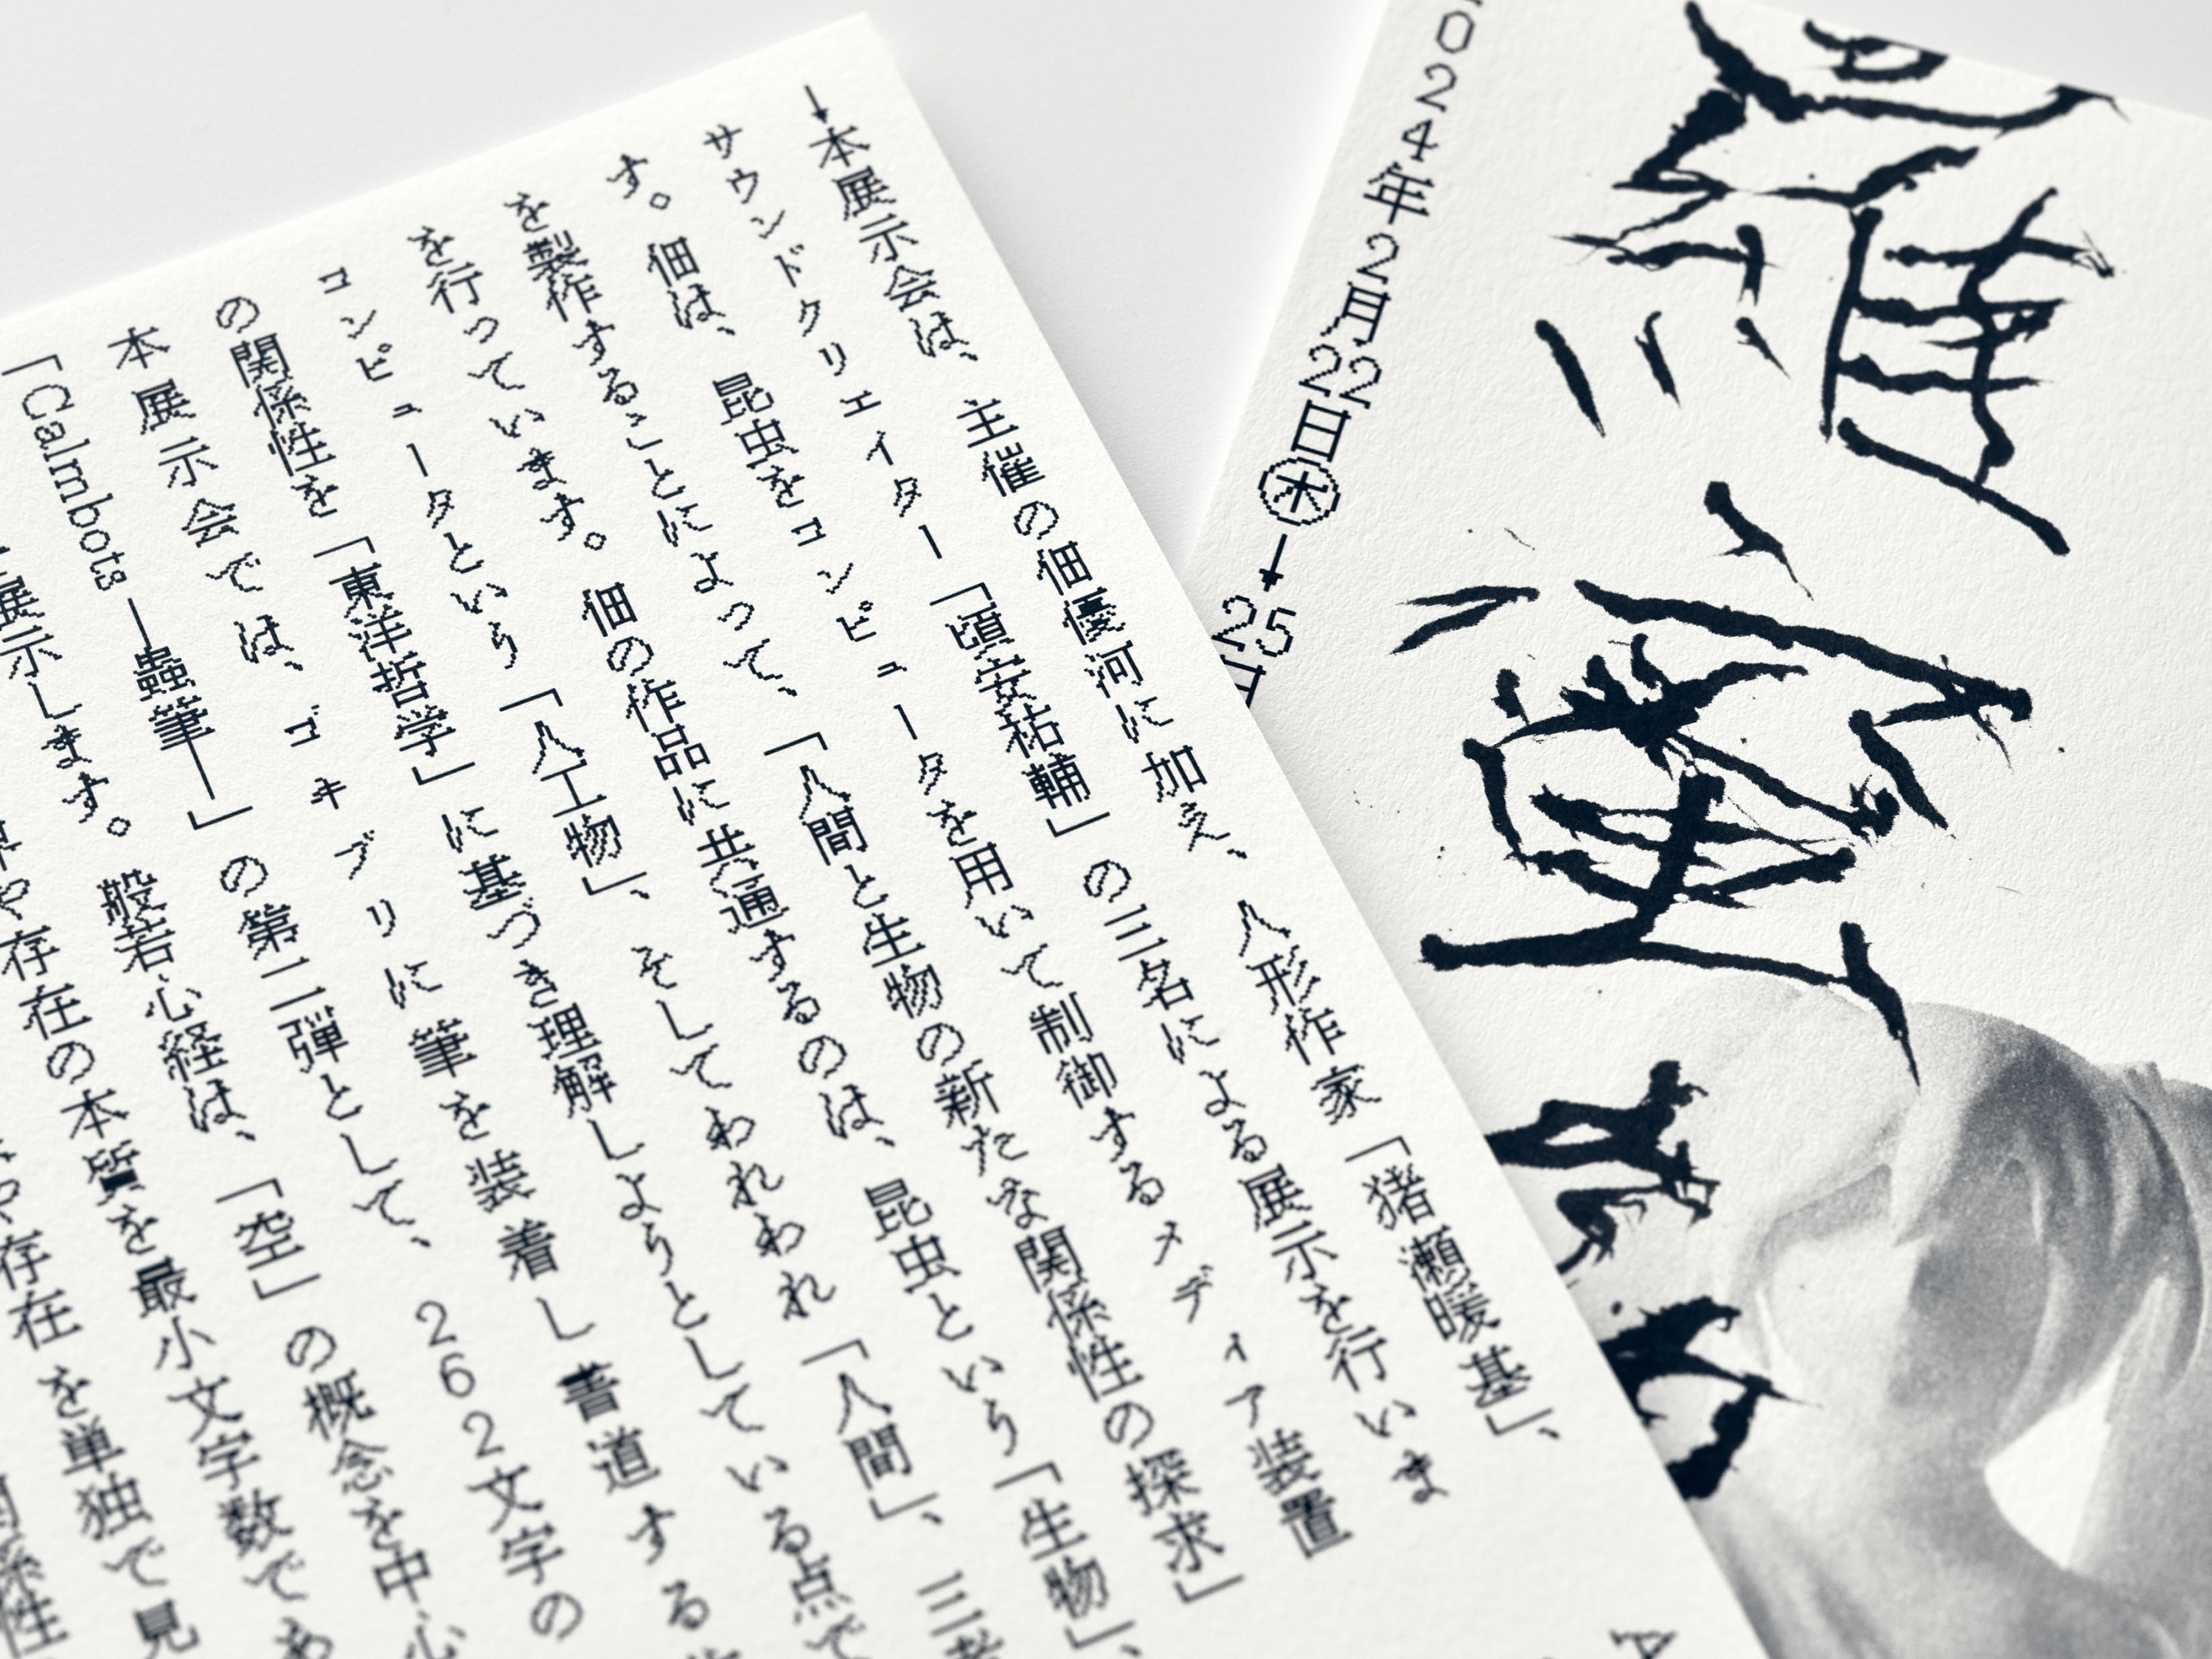 ↓本展示会は、主催の佃優河に加え、人形作家「猪瀬暖基」、
サウンドクリエイター「頃安祐輔」の三名による展示を行いま
す。佃は、昆虫をコンピュータを用いて制御するメディア装置
を製作することによって、「人間と生物の新たな関係性の探求」
を行っています。佃の作品に共通するのは、昆虫という「生物」、
コンピュータという「人工物」、そしてわれわれ「人間」、三者
の関係性を「東洋哲学」に基づき理解しようとしている点で
本展示会では、ゴキブリに筆を装着し書道する
「Calmbots—蟲筆—」の第二弾として、262文字の
展示します。般若心経は、「空」の概念を中心
存在の本質を最小文字数であ
存在を単独で見
関係性
024年2月22日㊍↓25日